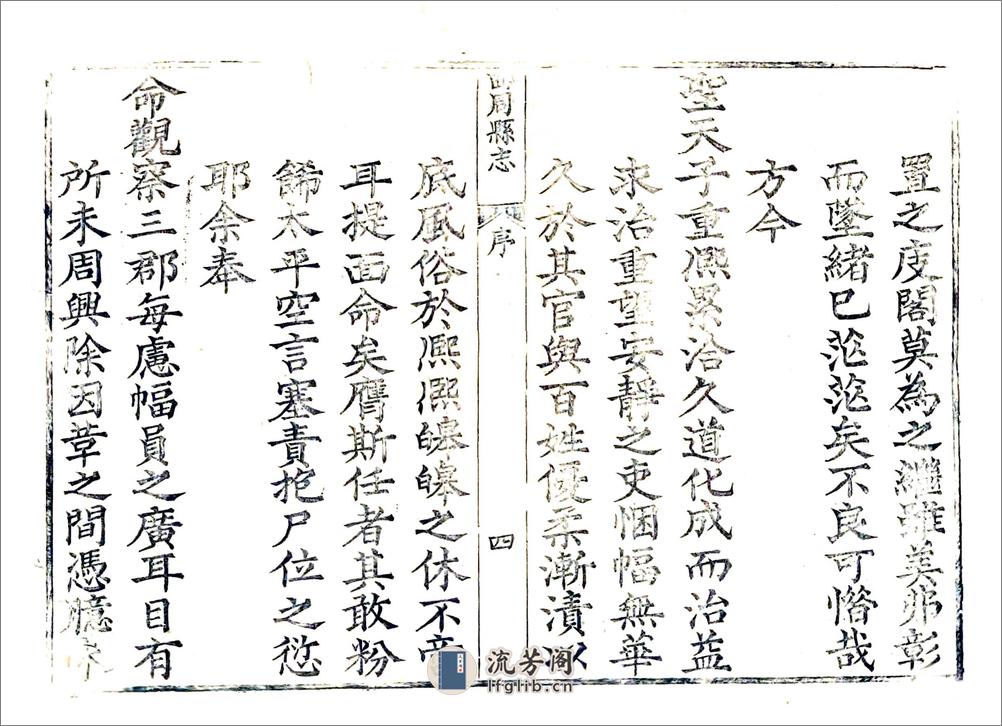 置之庋閣莫為之繼雖美弗彰
而墜緒已茫茫矣不良可惜哉
方今
聖天子重熈累洽久道化成而治益
求治重望安靜之吏悃幅無華
久於其官與百姓優柔漸漬以
周縣志 序 四
底風俗於熈熈皞皞之休不啻
耳提面命矣膺斯任者其敢粉
餙太平空言塞責抱尸位之愆
耶余奉
命觀察三郡每慮幅員之廣耳目有
所未周興除因革之間憑臆
流芳阁
lfglib.cn